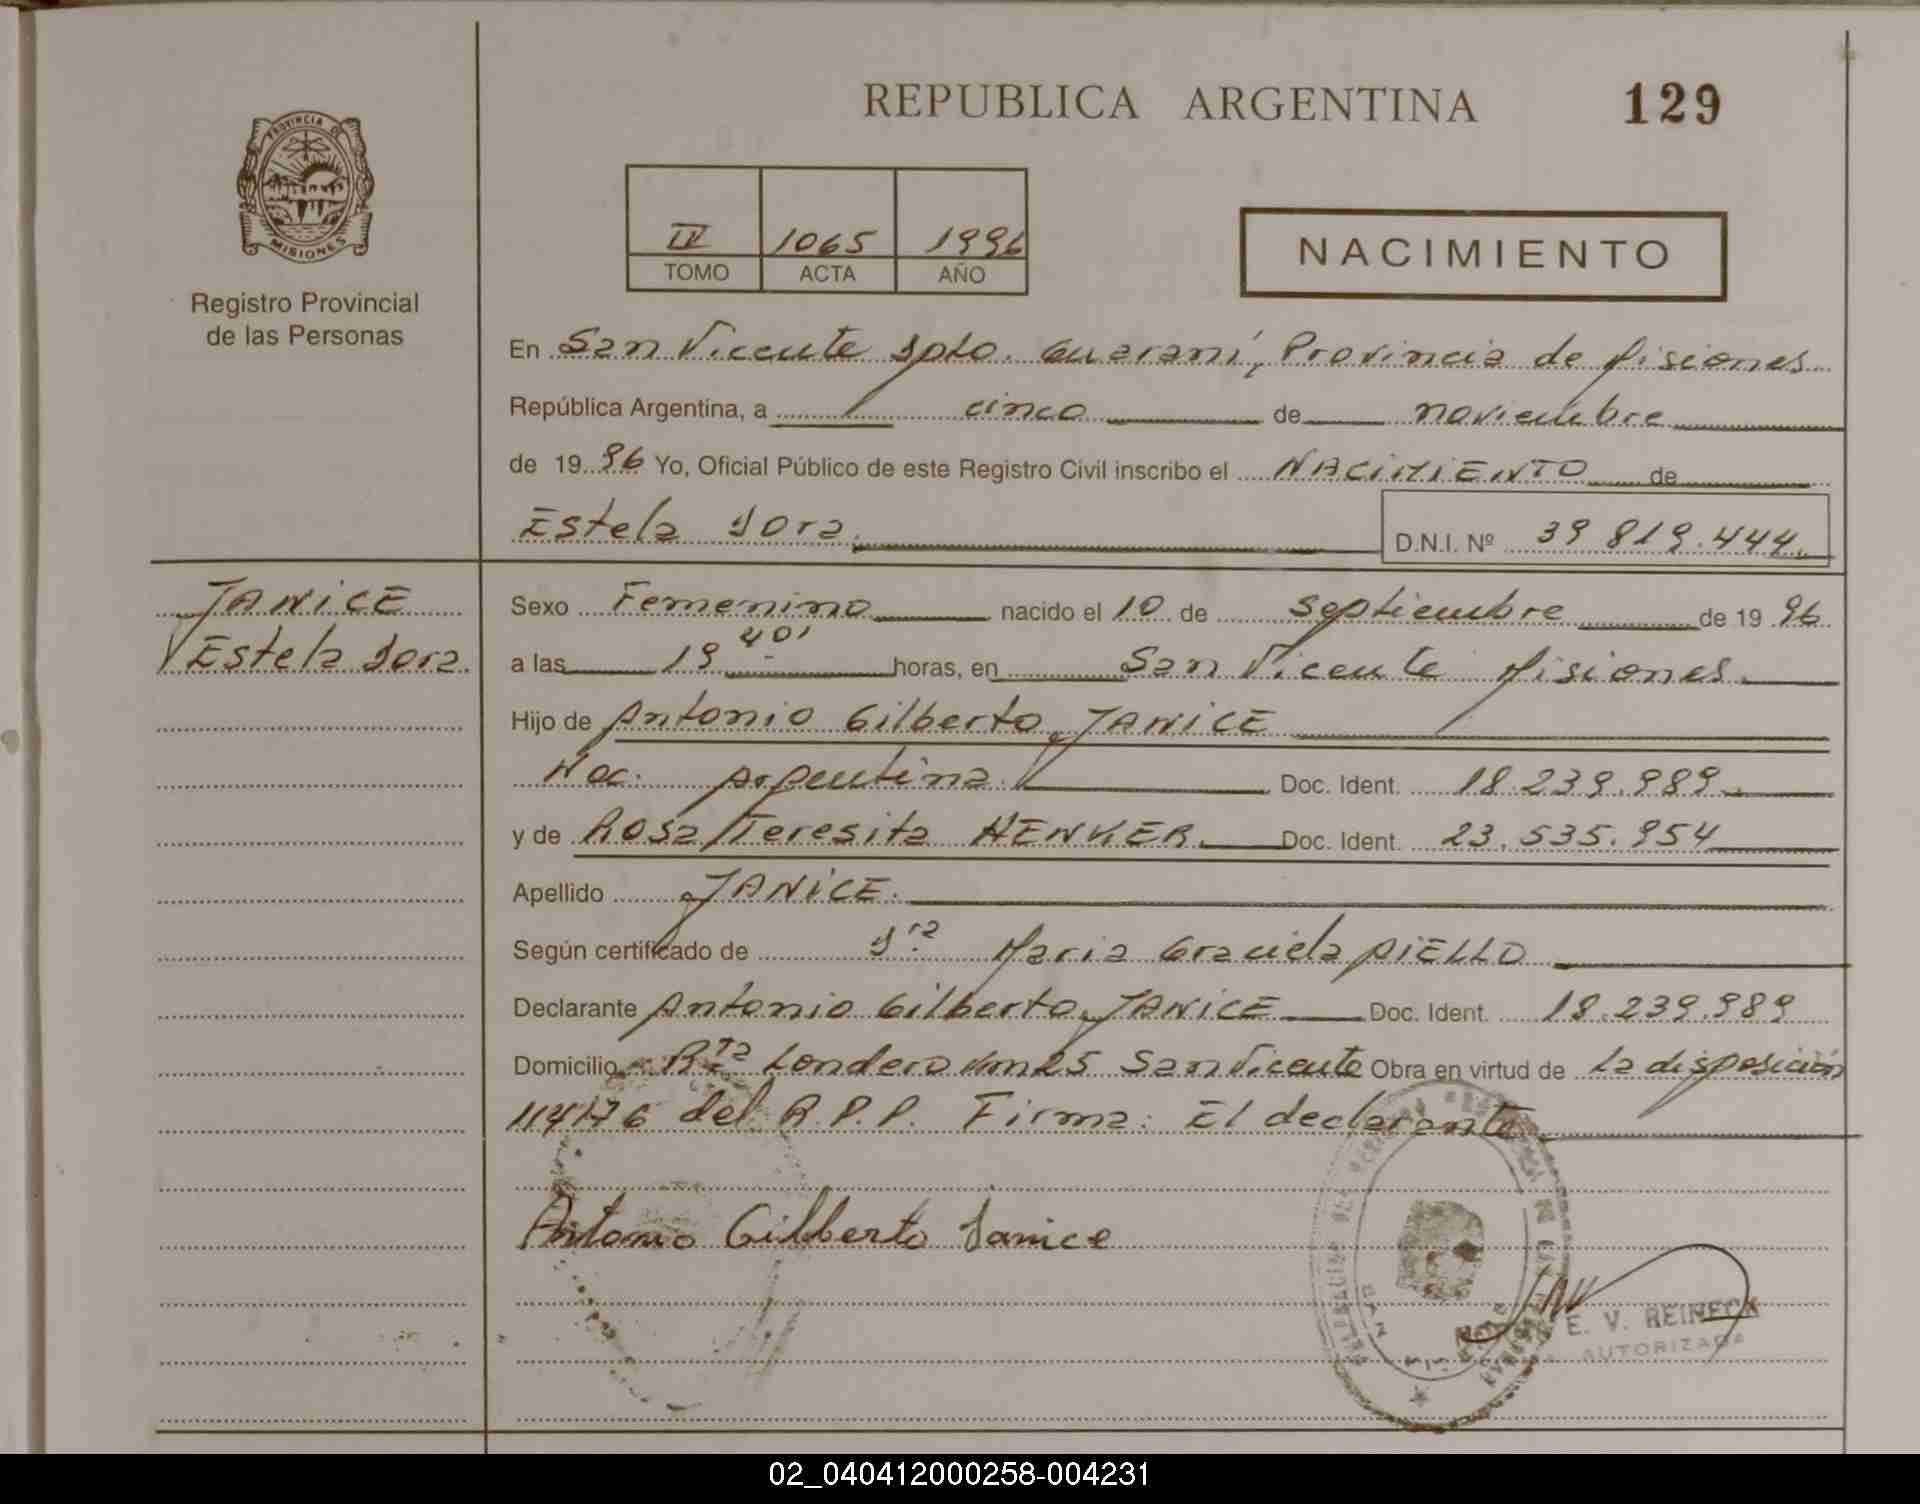 REPUBLICA ARGENTINA
129
PROVINCIA DE
MISIONES
Registro Provincial
de las Personas
IV 1065 1996
TOMO ACTA AÑO
NACIMIENTO
En San Vicente Dpto. Guaraní, Provincia de Misiones
República Argentina, a cinco de noviembre
de 1996 Yo, Oficial Público de este Registro Civil inscribo el NACIMIENTO de
Estela Dora.
D.N.I. Nº 39 819.444.
JANICE
Estela Dora.
Sexo Femenino nacido el 10 de Septiembre de 1996
a las 19 40' horas, en San Vicente Misiones.
Hijo de Antonio Gilberto JANICE
Nac. Argentina. Doc. Ident. 18.239.989.
y de Rosa Teresita HENKER. Doc. Ident. 23.535.954
Apellido JANICE.
Según certificado de Dra Maria Graciela AIELLO
Declarante Antonio Gilberto JANICE Doc. Ident. 18.239.989
Domicilio Rta Londero Km 25 San Vicente Obra en virtud de La disposición
114/76 del R.P.P. Firma: El declarante
Antonio Gilberto Janice
E. V. REINECK
AUTORIZADA
02_040412000258-004231